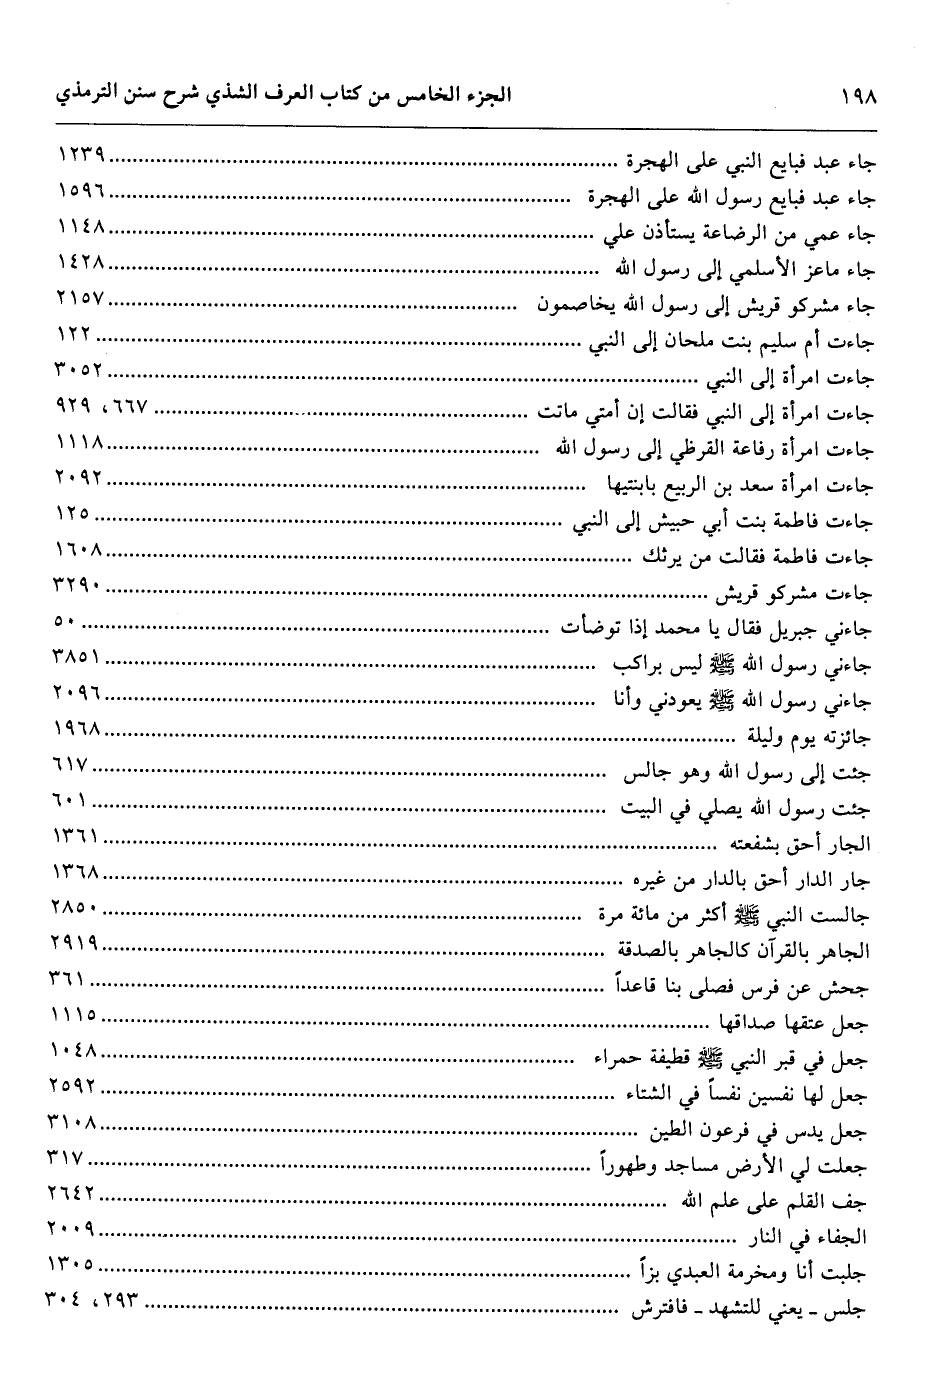 ١٩٨ الجزء الخامس من كتاب العرف الشذي شرح سنن الترمذي
جاء عبد فبايع النبي على الهجرة ........ ١٢٣٩
جاء عبد فبايع رسول الله على الهجرة ........ ١٥٩٦
جاء عمي من الرضاعة يستأذن علي ........ ١١٤٨
جاء ماعز الأسلمي إلى رسول الله ........ ١٤٢٨
جاء مشركو قريش إلى رسول الله يخاصمون ........ ٢١٥٧
جاءت أم سليم بنت ملحان إلى النبي ........ ١٢٢
جاءت امرأة إلى النبي ........ ٣٠٥٢
جاءت امرأة إلى النبي فقالت إن أمتي ماتت ........ ٦٦٧، ٩٢٩
جاءت امرأة رفاعة القرظي إلى رسول الله ........ ١١١٨
جاءت امرأة سعد بن الربيع بابنتيها ........ ٢٠٩٢
جاءت فاطمة بنت أبي حبيش إلى النبي ........ ١٢٥
جاءت فاطمة فقالت من يرثك ........ ١٦٠٨
جاءت مشركو قريش ........ ٣٢٩٠
جاءني جبريل فقال يا محمد إذا توضأت ........ ٥٠
جاءني رسول الله ﷺ ليس براكب ........ ٣٨٥١
جاءني رسول الله ﷺ يعودني وأنا ........ ٢٠٩٦
جائزته يوم وليلة ........ ١٩٦٨
جئت إلى رسول الله وهو جالس ........ ٦١٧
جئت رسول الله يصلي في البيت ........ ٦٠١
الجار أحق بشفعته ........ ١٣٦١
جار الدار أحق بالدار من غيره ........ ١٣٦٨
جالست النبي ﷺ أكثر من مائة مرة ........ ٢٨٥٠
الجاهر بالقرآن كالجاهر بالصدقة ........ ٢٩١٩
جحش عن فرس فصلى بنا قاعداً ........ ٣٦١
جعل عتقها صداقها ........ ١١١٥
جعل في قبر النبي ﷺ قطيفة حمراء ........ ١٠٤٨
جعل لها نفسين نفساً في الشتاء ........ ٢٥٩٢
جعل يدس في فرعون الطين ........ ٣١٠٨
جعلت لي الأرض مساجد وطهوراً ........ ٣١٧
جف القلم على علم الله ........ ٢٦٤٢
الجفاء في النار ........ ٢٠٠٩
جلبت أنا ومخرمة العبدي بزاً ........ ١٣٠٥
جلس ـ يعني للتشهد ـ فافترش ........ ٢٩٣، ٣٠٤